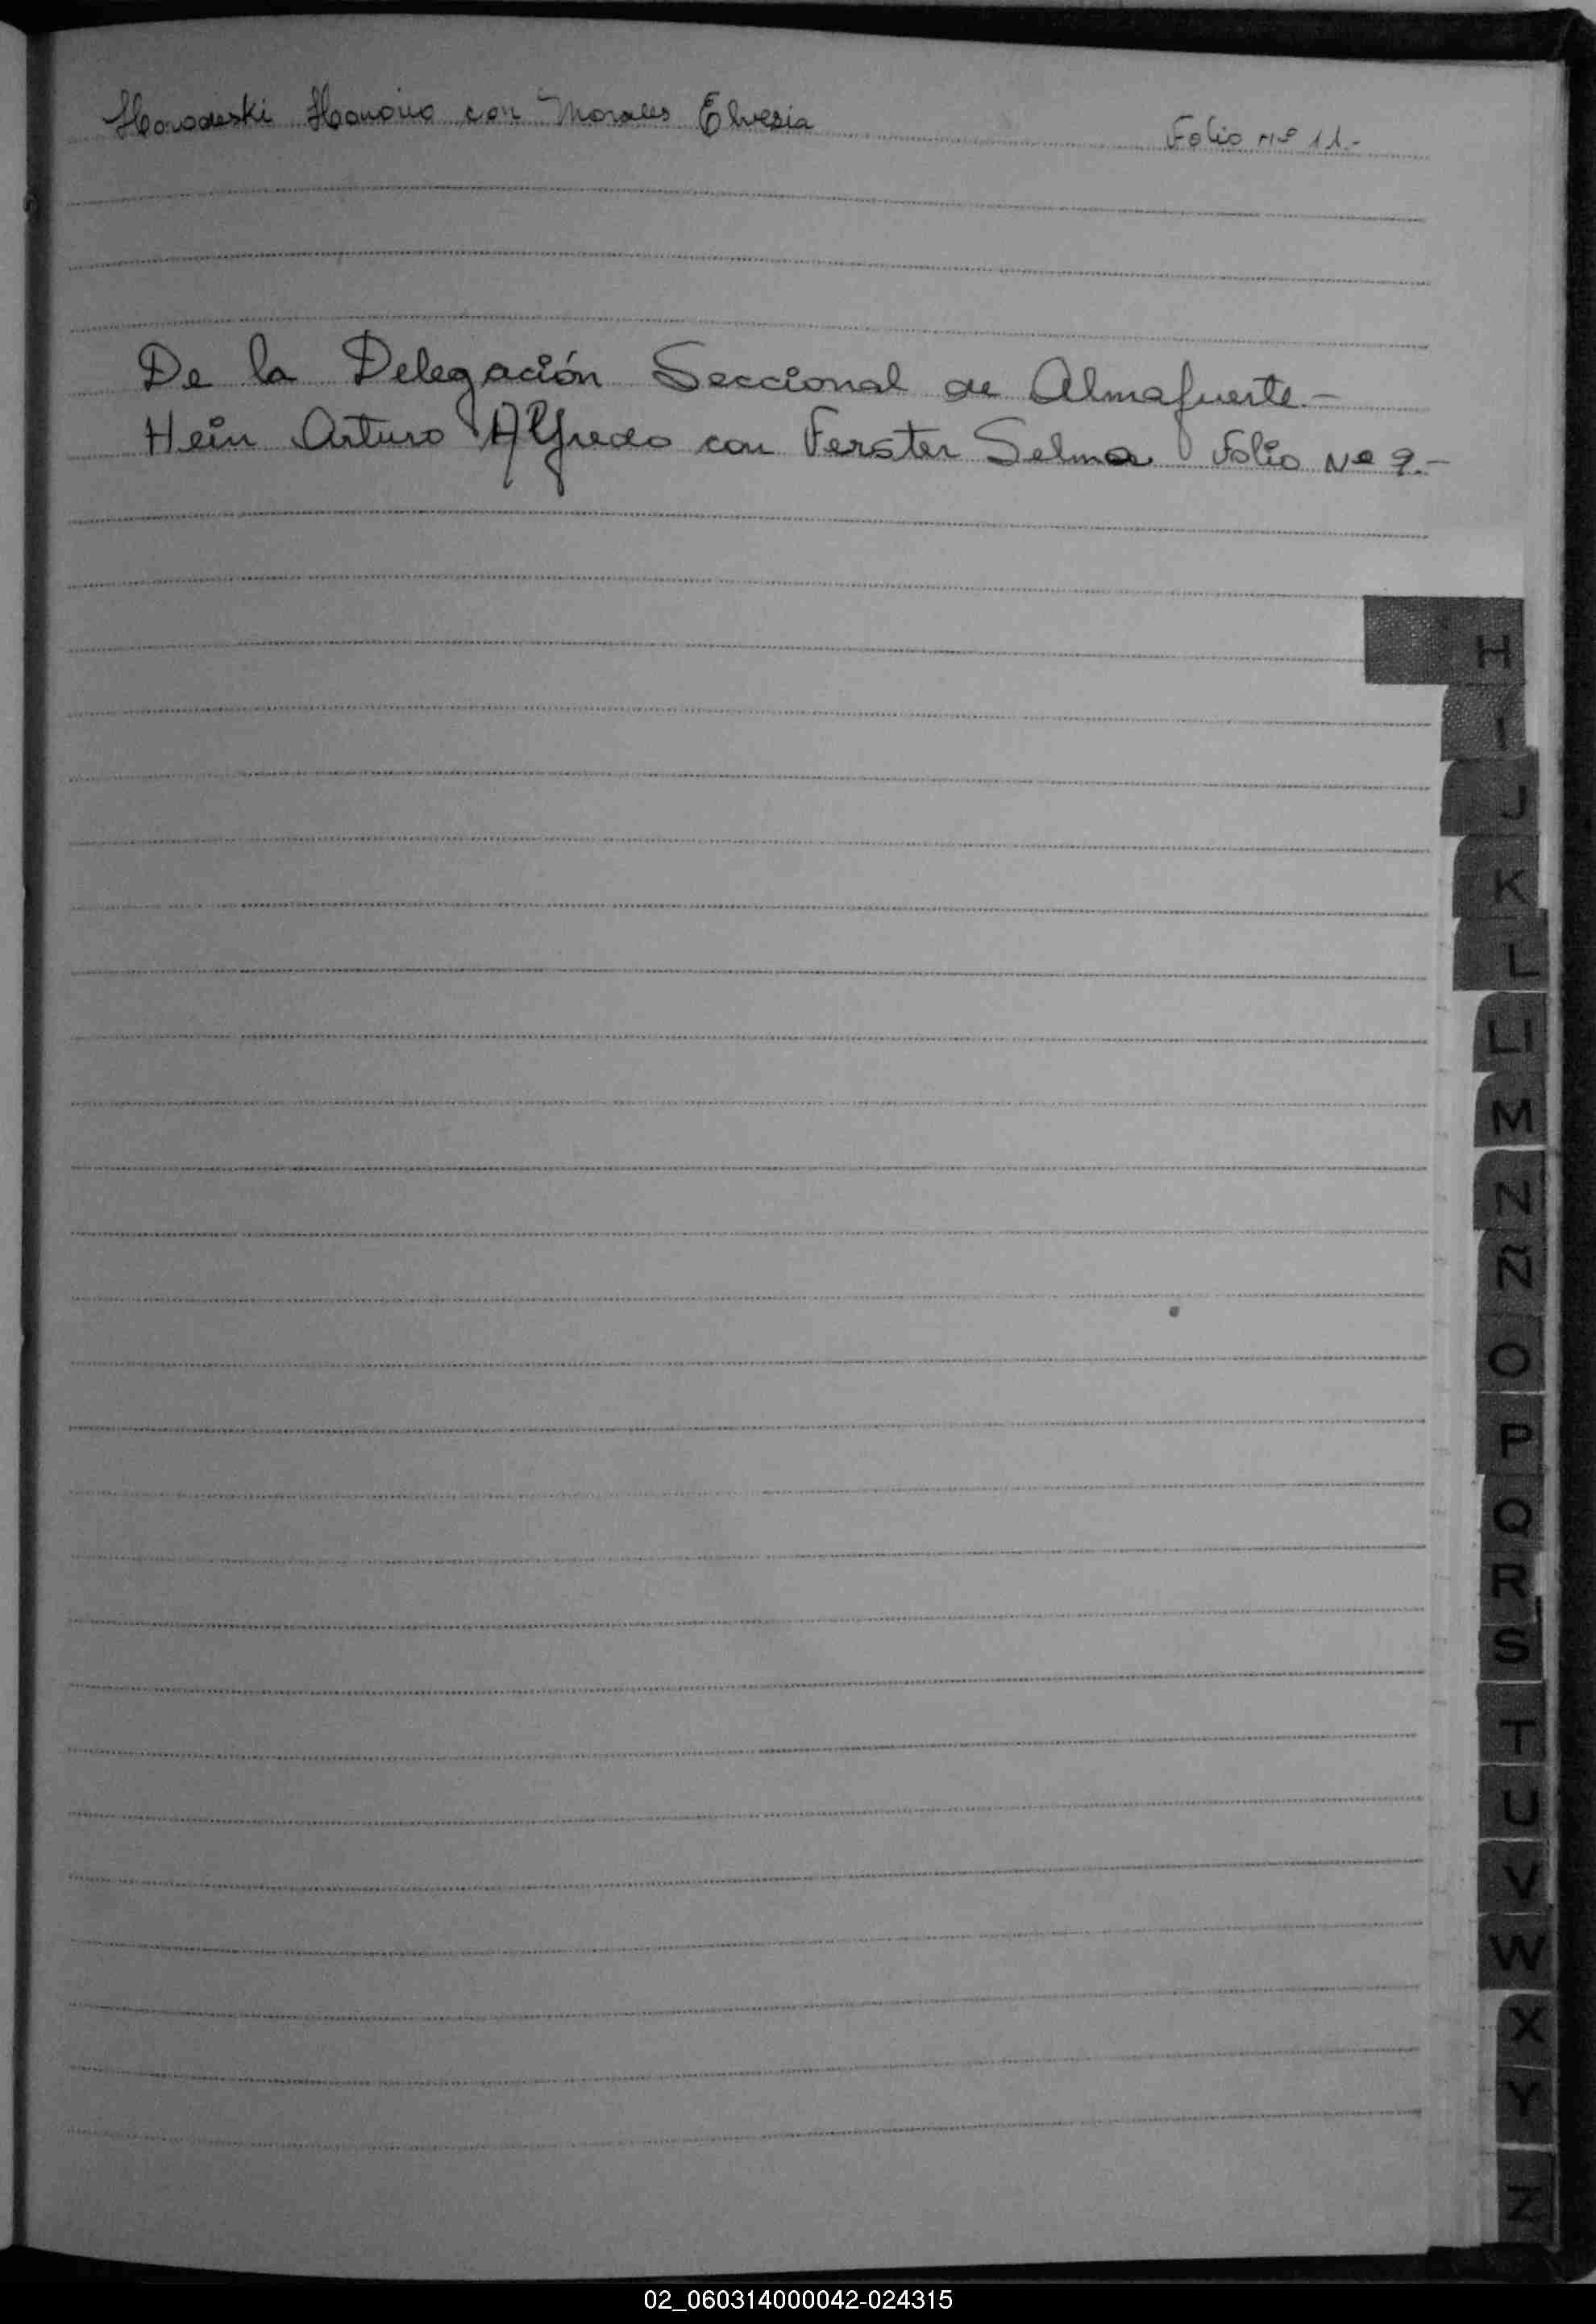 Horodeski Honorio con Morales Elvesia Folio Nº 11.-
De la Delegación Seccional de Almafuerte.-
Hein Arturo Alfredo con Ferster Selma Folio Nº 9.-
H
I
J
K
L
Ll
M
N
Ñ
O
P
Q
R
S
T
U
V
W
X
Y
Z
02_060314000042-024315